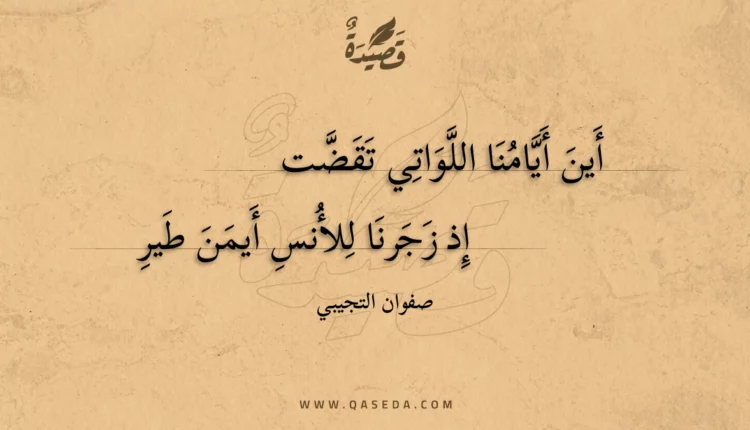 قَصِيْدَةٌ
أَينَ أَيَّامُنَا اللَّوَاتِي تَقَضَّت
إِذ زَجَرنَا لِلأُنسِ أَيمَنَ طَيرِ
صفوان التجيبي
WWW.QASEDA.COM